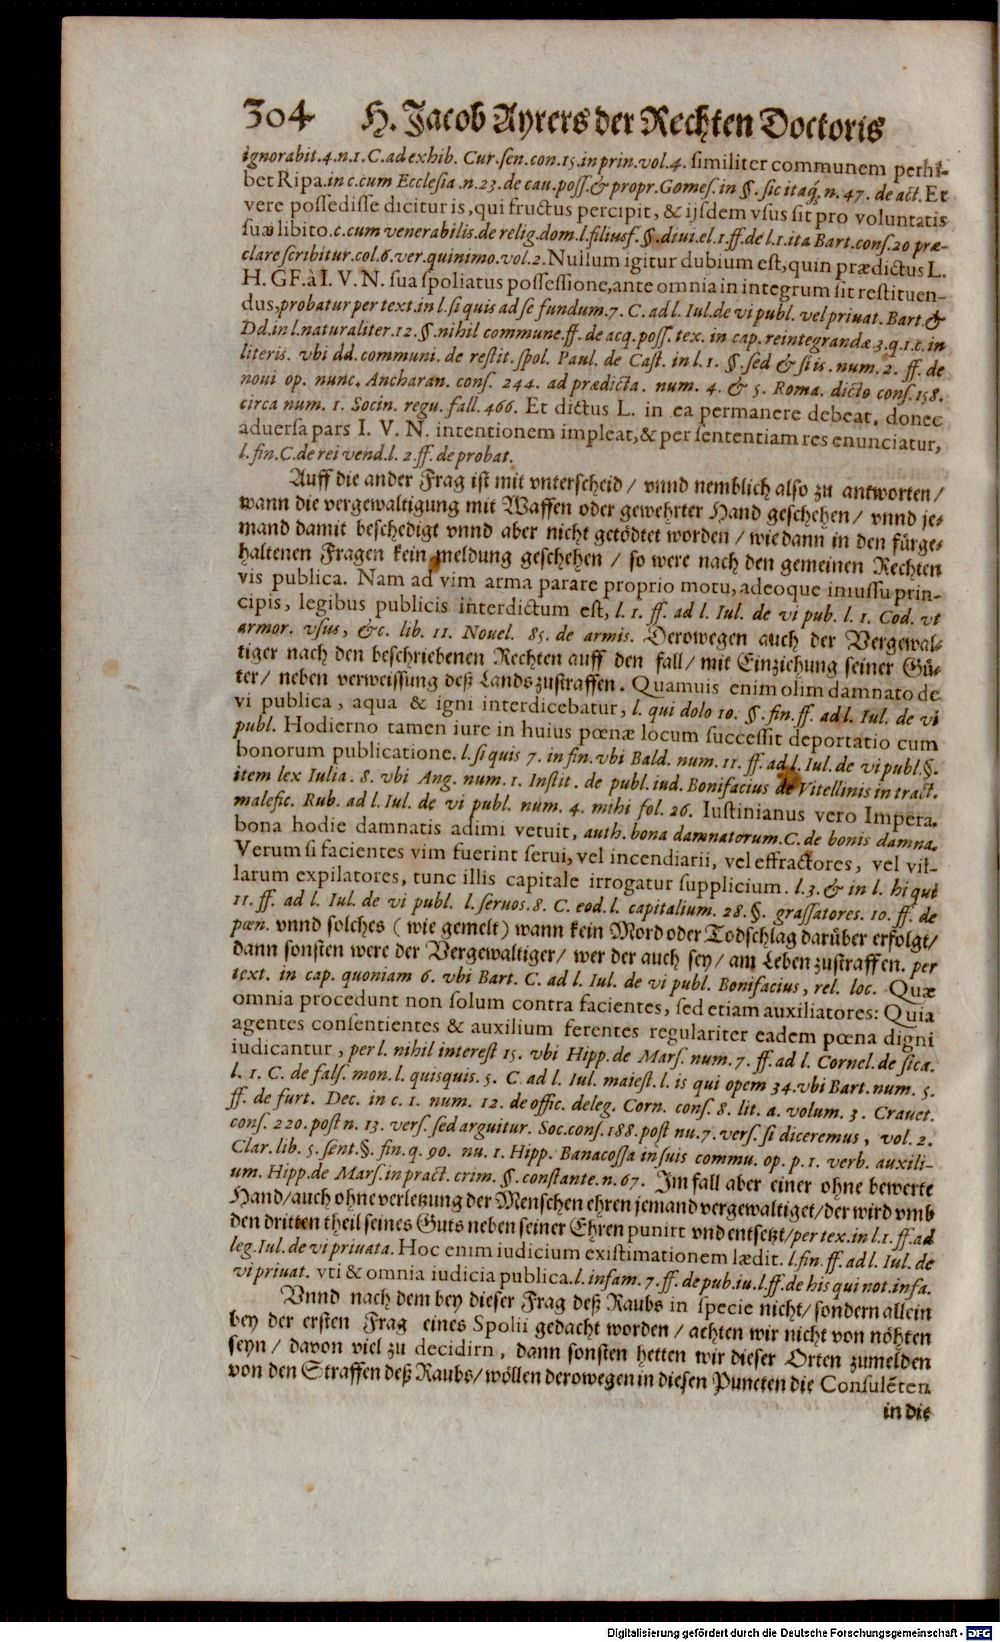 304 H. Jacob Ayrers der Rechten Doctoris
ignorabit.4.n.1.C.ad exhib. Cur.sen.con.15.in prin.vol.4. similiter communem perhi-
bet Ripa.in c.cum Ecclesia.n.23.de cau.poss.& propr.Gomes.in §.sic itaq́.n.47. de act. Et
vere possedisse dicitur is, qui fructus percipit, & ijsdem vsus sit pro voluntatis
suæ libito.c.cum venerabilis.de relig.dom.l.filiusf.§.diui.el.1.ff.de l.1.ita Bart.cons.20 præ-
clare scribitur.col.6.ver.quinimo.vol.2. Nullum igitur dubium est, quin prædictus L.
H. GF. à I. V. N. sua spoliatus possessione, ante omnia in integrum sit restituen-
dus, probatur per text.in l.si quis ad se fundum.7. C. ad l. Iul.de vi publ. vel priuat. Bart.&
Dd.in l.naturaliter.12.§.nihil commune.ff. de acq.poss. tex. in cap. reintegrandæ 3.q.1.c.in
literis. vbi dd. communi. de restit. spol. Paul. de Cast. in l. 1. §. sed & si is. num. 2. ff. de
noui op. nunc. Ancharan. cons. 244. ad prædicta. num. 4. & 5. Roma. dicto cons.158.
circa num. 1. Socin. regu. fall. 466. Et dictus L. in ea permanere debeat, donec
aduersa pars I. V. N. intentionem impleat, & per sententiam res enunciatur,
l. fin. C.de rei vend.l. 2.ff. de probat.
Auff die ander Frag ist mit vnterscheid / vnnd nemblich also zu antworten /
wann die vergewaltigung mit Waffen oder gewehrter Hand geschehen / vnnd je-
mand damit beschedigt vnnd aber nicht getödtet worden / wie dann in den fürge-
haltenen Fragen kein meldung geschehen / so were nach den gemeinen Rechten
vis publica. Nam ad vim arma parare proprio motu, adeoque iniussu prin-
cipis, legibus publicis interdictum est, l. 1. ff. ad l. Iul. de vi pub. l. 1. Cod. vt
armor. vsus, &c. lib. 11. Nouel. 85. de armis. Derowegen auch der Vergewal-
tiger nach den beschriebenen Rechten auff den fall / mit Einziehung seiner Gü-
ter / neben verweissung deß Lands zustraffen. Quamuis enim olim damnato de
vi publica, aqua & igni interdicebatur, l. qui dolo 10. §. fin. ff. ad l. Iul. de vi
publ. Hodierno tamen iure in huius pœnæ locum successit deportatio cum
bonorum publicatione. l. si quis 7. in fin. vbi Bald. num. 11. ff. ad l. Iul. de vi publ.§.
item lex Iulia. 8. vbi Ang. num. 1. Instit. de publ. iud. Bonifacius de Vitellinis in tract.
malefic. Rub. ad l. Iul. de vi publ. num. 4. mihi fol. 26. Iustinianus vero Impera.
bona hodie damnatis adimi vetuit, auth. bona damnatorum.C. de bonis damna.
Verum si facientes vim fuerint serui, vel incendiarii, vel effractores, vel vil-
larum expilatores, tunc illis capitale irrogatur supplicium. l.3. & in l. hi qui
11. ff. ad l. Iul. de vi publ. l. seruos. 8. C. eod. l. capitalium. 28. §. grassatores. 10. ff. de
pœn. vnnd solches ( wie gemelt ) wann kein Mord oder Todschlag darüber erfolgt /
dann sonsten were der Vergewaltiger / wer der auch sey / am Leben zustraffen. per
text. in cap. quoniam 6. vbi Bart. C. ad l. Iul. de vi publ. Bonifacius, rel. loc. Quæ
omnia procedunt non solum contra facientes, sed etiam auxiliatores: Quia
agentes consentientes & auxilium ferentes regulariter eadem pœna digni
iudicantur, per l. nihil interest 15. vbi Hipp. de Mars. num. 7. ff. ad l. Cornel. de sica.
l. 1. C. de fals. mon. l. quisquis. 5. C. ad l. Iul. maiest. l. is qui opem 34. vbi Bart. num. 5.
ff. de furt. Dec. in c. 1. num. 12. de offic. deleg. Corn. cons. 8. lit. a. volum. 3. Crauet.
cons. 220. post n. 13. vers. sed arguitur. Soc. cons. 188. post nu. 7. vers. si diceremus, vol. 2.
Clar. lib. 5. sent.§. fin. q. 90. nu. 1. Hipp. Banacossa in suis commu. op. p. 1. verb. auxili-
um. Hipp. de Mars. in pract. crim. §. constante. n. 67. Im fall aber einer ohne bewerte
Hand / auch ohne verletzung der Menschen ehren jemand vergewaltiget / der wird vmb
den dritten theil seines Guts neben seiner Ehren punirt vnd entsetzt / per tex. in l.1. ff. ad
leg. Iul. de vi priuata. Hoc enim iudicium existimationem lædit. l. fin. ff. ad l. Iul. de
vi priuat. vti & omnia iudicia publica. l. infam. 7. ff. de pub. iu. l. ff. de his qui not. infa.
Vnnd nach dem bey dieser Frag deß Raubs in specie nicht / sondern allein
bey der ersten Frag eines Spolii gedacht worden / achten wir nicht von nöhten
seyn / davon viel zu decidirn, dann sonsten hetten wir dieser Orten zumelden
von den Straffen deß Raubs / wöllen derowegen in diesen Puncten die Consulẽten
in die
Digitalisierung gefördert durch die Deutsche Forschungsgemeinschaft - DFG